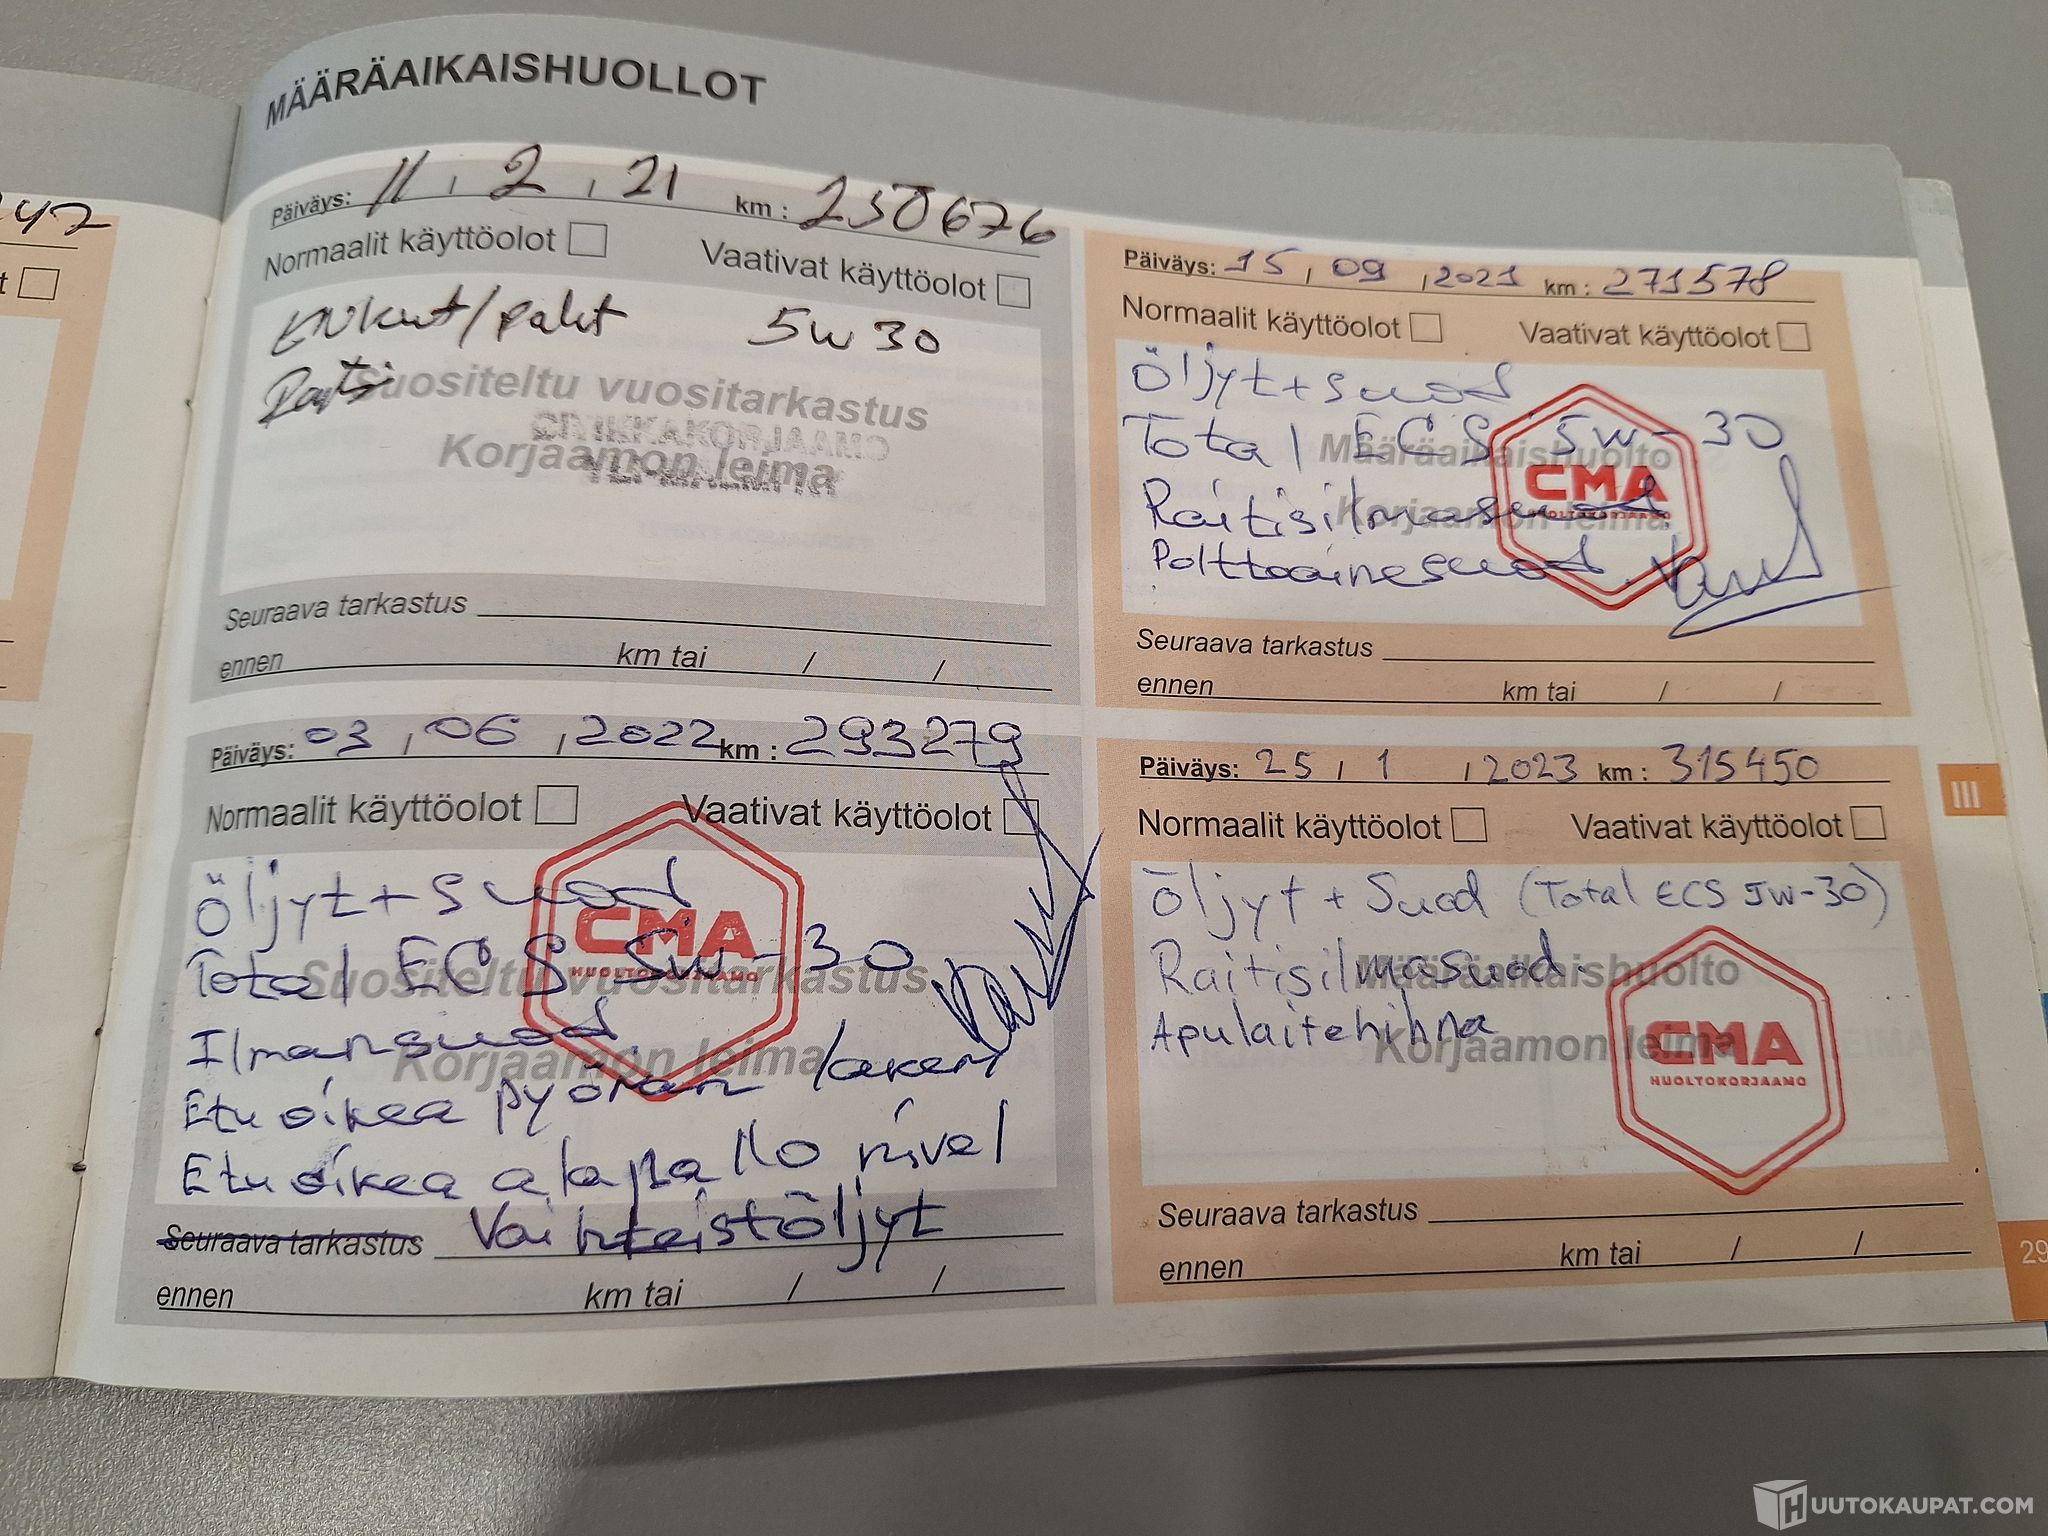 MÄÄRÄAIKAISHUOLLOT
Päiväys: 11 , 2 , 21 km : 250676
Normaalit käyttöolot Vaativat käyttöolot
5W30
Suositeltu vuositarkastus
Korjaamon leima
Seuraava tarkastus
ennen km tai / /
Päiväys: 15 , 09 , 2021 km : 271578
Normaalit käyttöolot Vaativat käyttöolot
Öljyt + suod
Total ECS 5W-30
Määräaikaishuolto
Raitisilmasuod.
Korjaamon leima
Polttoainesuod.
CMA
HUOLTOKORJAAMO
Seuraava tarkastus
ennen km tai / /
Päiväys: 03 , 06 , 2022 km : 293279
Normaalit käyttöolot Vaativat käyttöolot
Öljyt + suod
Total ECS 5W-30
Suositeltu vuositarkastus
Ilmansuod.
Korjaamon leima
Etu oikea pyörän laakeri
Etu oikea alapallo nivel
CMA
HUOLTOKORJAAMO
Seuraava tarkastus Vaihteistöljyt
ennen km tai / /
Päiväys: 25 , 1 , 2023 km : 315450
Normaalit käyttöolot Vaativat käyttöolot
Öljyt + Suod (Total ECS 5W-30)
Raitisilmasuod.
Määräaikaishuolto
Apulaitehihna
Korjaamon leima
CMA
HUOLTOKORJAAMO
Seuraava tarkastus
ennen km tai / /
III
29
HUUTOKAUPAT.COM